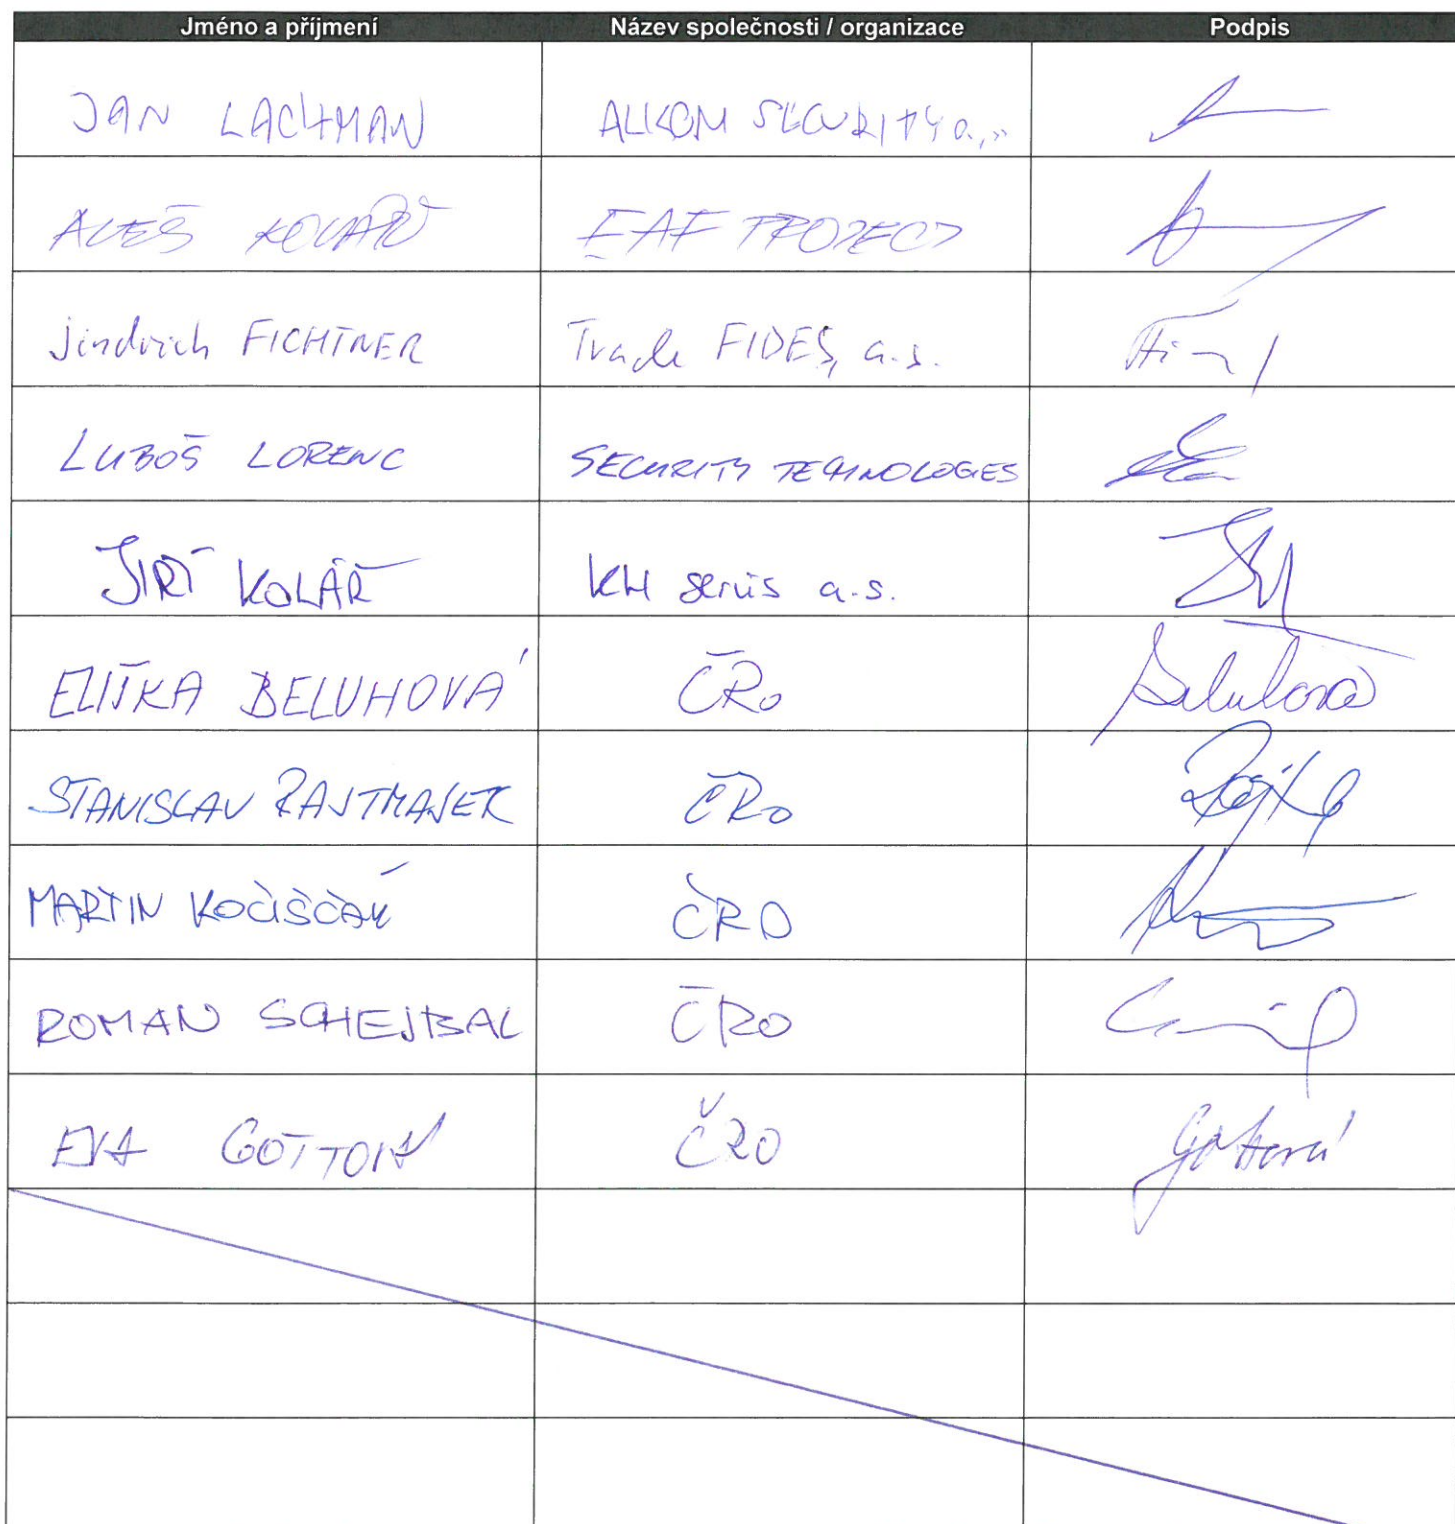 Jméno a příjmení Název společnosti / organizace Podpis
JAN LACHMAN ALKOM SECURITY a.s.
ALEŠ KOLÁŘ EAF PROJECT
Jindrich FICHTNER Trade FIDES, a.s.
LUBOŠ LORENC SECURITY TECHNOLOGIES
JIŘÍ KOLÁŘ KH servis a.s.
ELIŠKA BELUHOVÁ ČRo Beluhová
STANISLAV RAJTMAJER ČRo
MARTIN KOČIŠČÁK ČRO
ROMAN SCHEJBAL ČRO
EVA ČRO